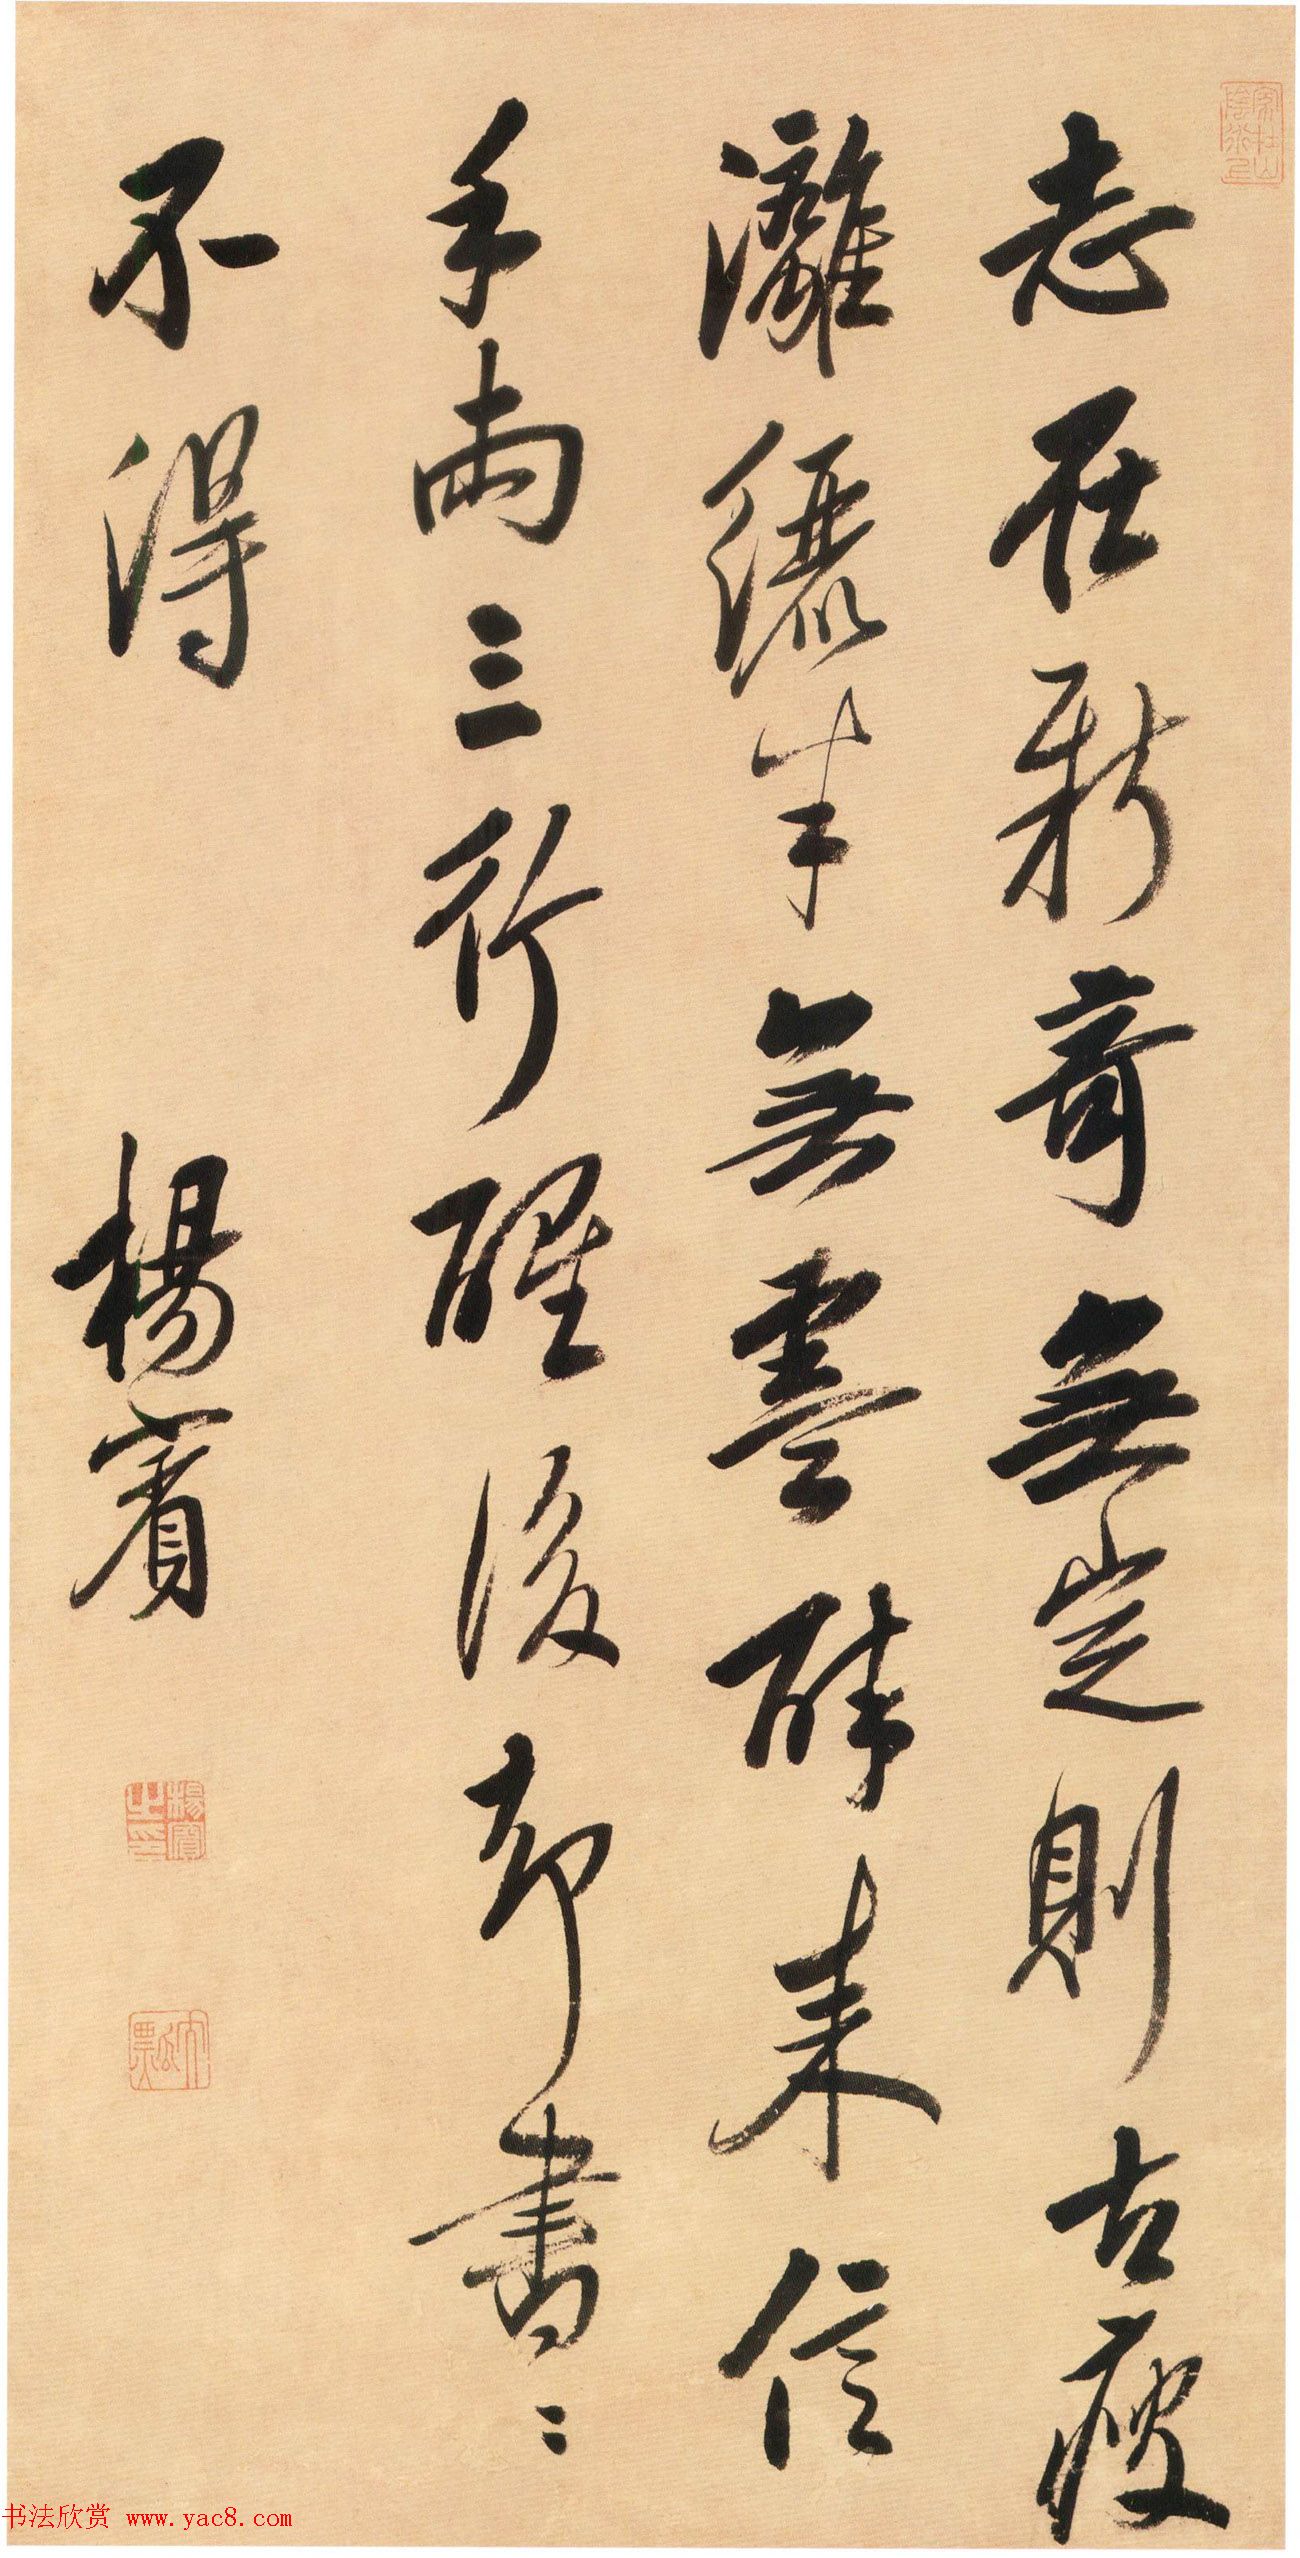 志在新奇無定則古瘦
灕纚半無墨醉來信
手兩三行醒後却書〻
不得
楊賓
楊賓之印
大瓢
书法欣赏 www.yac8.com